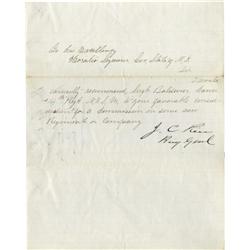 To His Excellency
Horatio Seymour Gov State of N.Y.
Sir
I cheerfully recommend Sergt
4th Regt N.Y.S.M. to your favorable
for a commission in some new
Regiment or Company
J. C.
Brig Genl